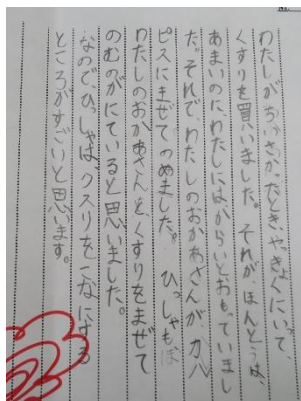 わたしがちいさかっだとき、やっきょくにいって、
くすりを買いました。それが、ほんとうは、
あまいのに、わたしには、からいとおもっていまし
た。それで、わたしのおかあさんが、カハ
ピスにまぜてのめました。ひっしゃもぼ
わたしのおかあさんと、くすりをまぜて
のむのがにていると思いました。
なので、ひっしゃは、クスリをこなにする
ところがすごいと思います。